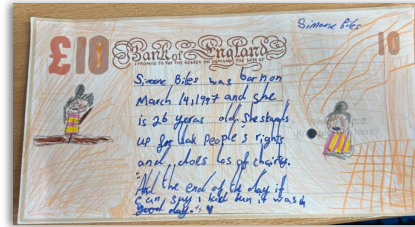 Simone Biles
£10 Bank of England 10
I PROMISE TO PAY THE BEARER ON DEMAND THE SUM OF
Simone Biles was born on
March 14, 1997 and she
is 26 yeras old. She stands
up for blak people's rights
and does los of charity.
"At the end of the day if
I can say I had fun it was a
good day".